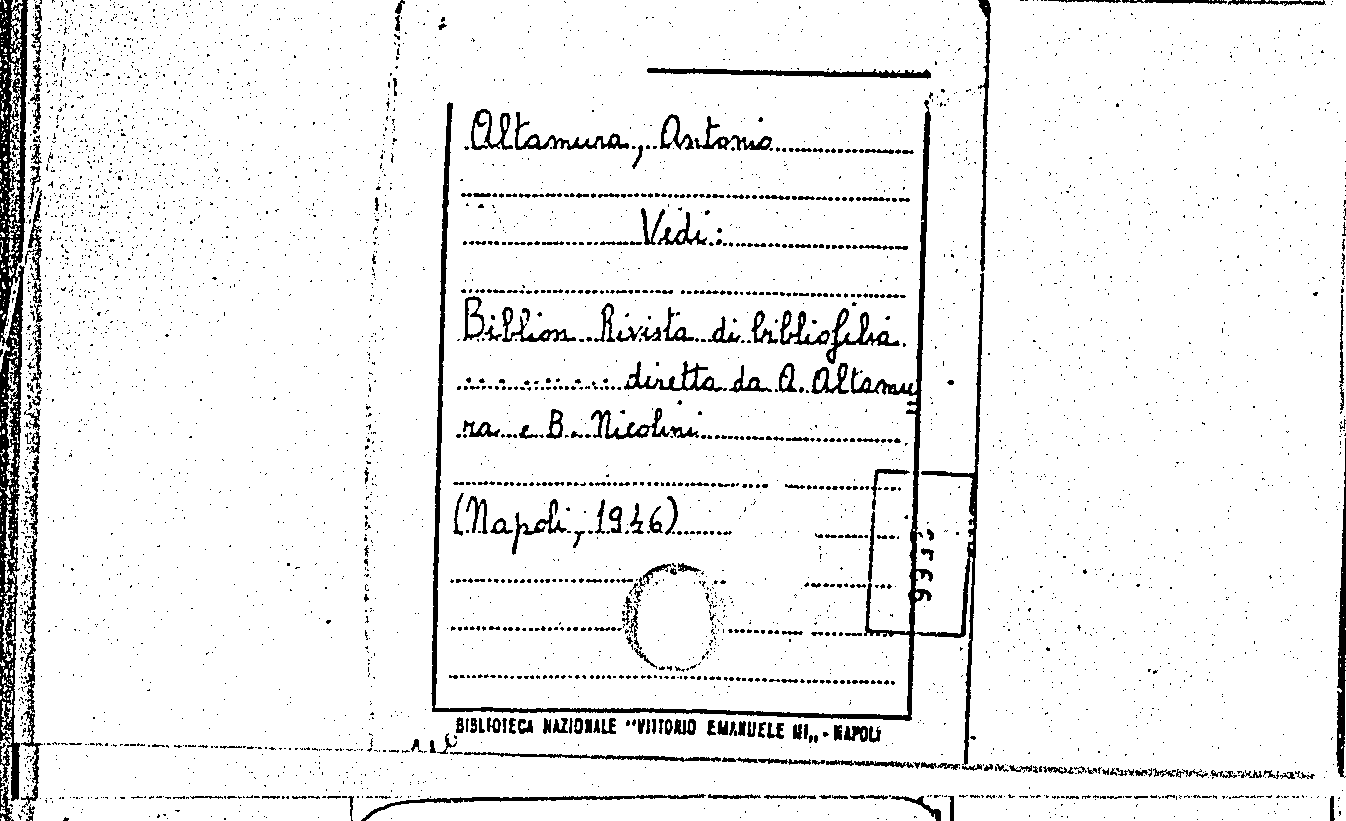 Altamura, Antonio
Vedi:
Biblion Rivista di bibliofilia
.......... diretta da A. Altamu=
ra e B. Nicolini
(Napoli, 1946)
BIBLIOTECA NAZIONALE "VITTORIO EMANUELE III„ - NAPOLI